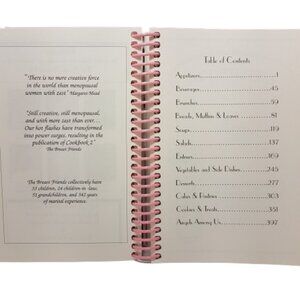 "There is no more creative force
in the world than menopausal
women with zest" Margaret Mead
"Still creative, still menopausal,
and with more zest than ever...
Our hot flashes have transformed
into power surges, resulting in the
publication of Cookbook 2"
The Breast Friends
The Breast Friends collectively have
33 children, 24 children-in-law,
51 grandchildren, and 342 years
of marital experience.
Table of Contents
Appetizers 1
Beverages 45
Brunches 59
Breads, Muffins & Loaves 81
Soups 119
Salads 137
Entrees 169
Vegetables and Side Dishes 245
Desserts 277
Cakes & Pastries 303
Cookies & Treats 351
Angels Among Us 397